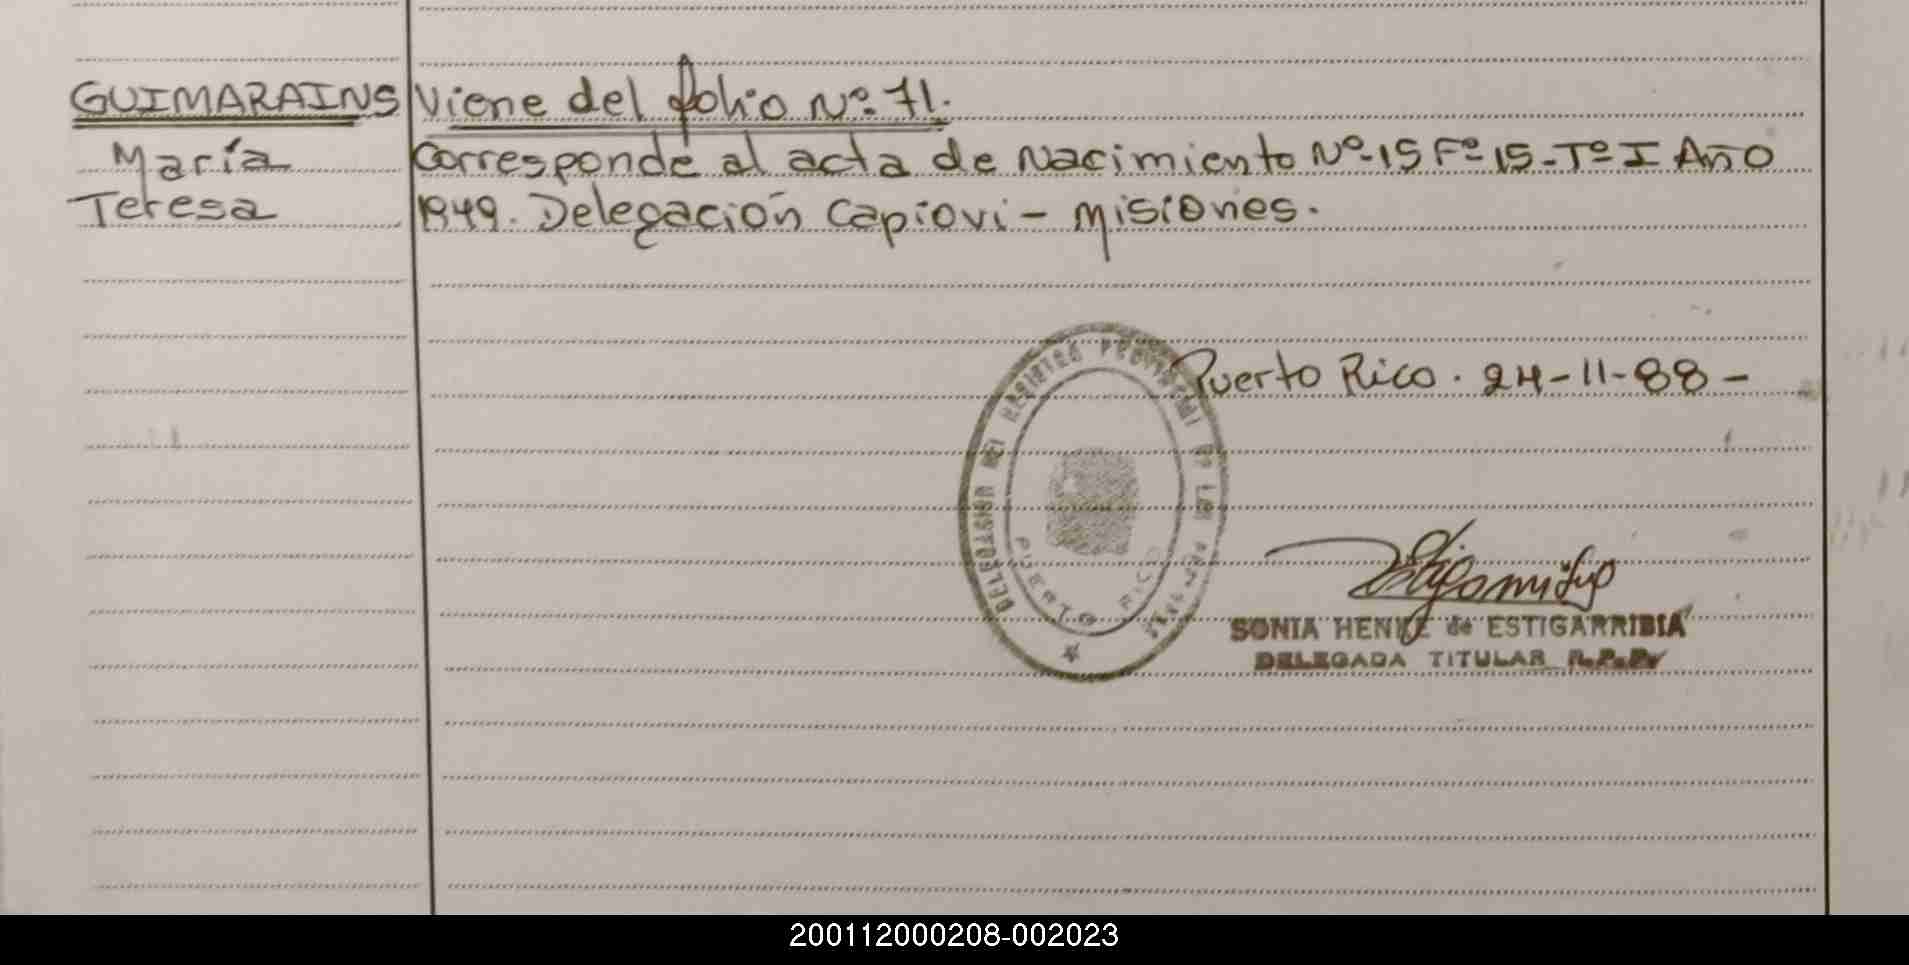 GUIMARAINS Viene del folio Nº 71.
María Corresponde al acta de Nacimiento Nº 15 Fº 15 - Tº I Año
Teresa 1949. Delegación Capiovi - Misiones.
Puerto Rico. 24-11-88 -
PUERTO RICO
SONIA HENKE de ESTIGARRIBIA
DELEGADA TITULAR R.P.P.
200112000208-002023